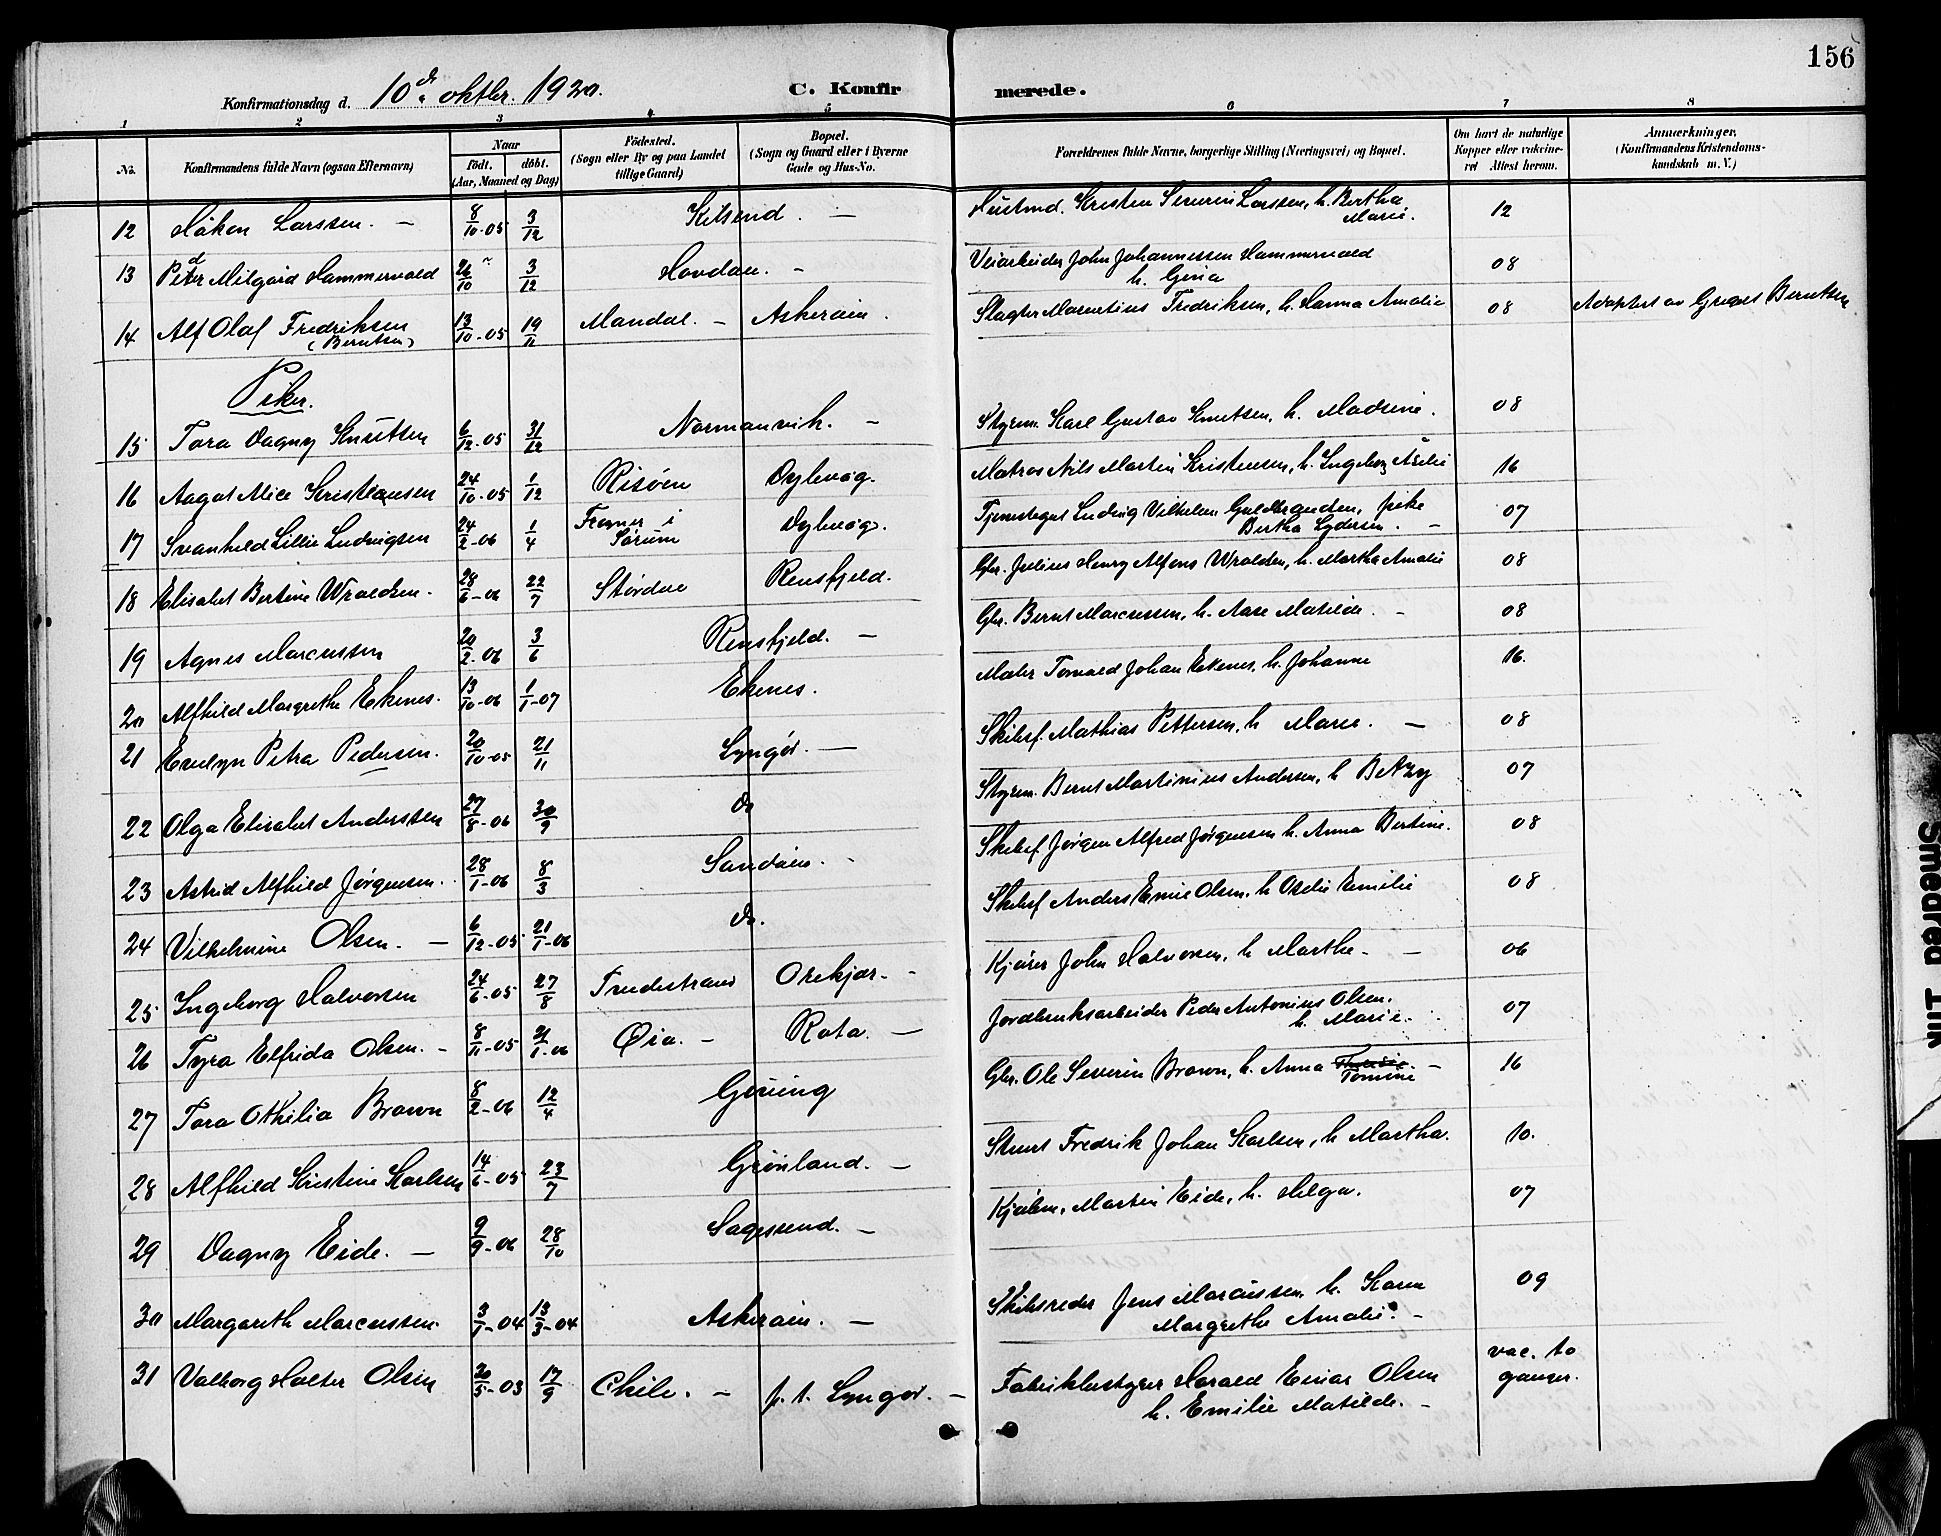 156
Konfirmationsdag d. 10de oktbr. 1920. C. Konfirmerede.
1 2 3 4 5 6 7 8
No. | Konfirmandens fulde Navn (ogsaa Efternavn) | Naar født. døbt. (Aar, Maaned og Dag) | Fødested. (Sogn eller By og paa Landet tillige Gaard) | Bopæl. (Sogn og Gaard eller i Byerne Gade og Hus-No. | Forældrenes fulde Navne, borgerlige Stilling (Næringsvei) og Bopæl. | Om havt de naturlige Kopper eller vakcineret Attest herom. | Anmærkninger, (Konfirmandens Kristendomskundskab m. V.)
12 Håken Larssen. — 8/10-05 3/12 Kilsund. — Kristen Severin Larssen, h. Bertha Marie. 12
13 Peder Milgård Hammervold 26/10 " 3/12 Hovdan. - Veiarbeider John Johannessen Hammervold h. Gina 08
14 Alf Olaf Fredriksen (Berntsen) 13/10-05 19/11 Mandal. - Askerøien. Slagter Marentius Fredriksen, h. Hanna Amalie 08 Adoptert av Berntsen
Piker.
15 Tora Dagny Knutsen 6/12-05 31/12 Normanvik. - Styrm. Karl Gustav Knutsen, h. Madsine. 08
16 Aagot Alice Kristensen 24/10-05 1/12 Risøen Dybvåg. Matros Nils Martin Kristensen, h. Ingeborg 16
17 Svanhild Lillie Ludvigsen 24/2-06 1/4 i Sørum Dybvåg. Ludvig Vilhelm Guldbrandsen, pike Bertha Lydersen. - 07
18 Elisabet Bertine Wroldsen. 28/6-06 22/7 Størdal Rensfjeld. Gbr. Julius Henry Alfons Wroldsen, h. Martha Amalie 08
19 Agnes Marcussen 20/2-06 3/6 Rensfjeld. — Gbr. Bernt Marcussen, h. Aase Matilde. - 08
20 Alfhild Margrethe Ekenes. 13/10-06 1/1-07 Ekenes. Maler Torvald Johan Ekenes, h. Johanne 16.
21 Evelyn Petra Pedersen. 20/10-05 21/11 Lyngør. — Skibsf. Mathias Pettersen, h. Marie. — 08
22 Olga Elisabet Anderssen 27/8-06 30/9 Do Styrm. Bernt Martinius Andersen, h. Betzy 07
23 Astrid Alfhild Jørgensen. 28/1-06 8/3 Sandøien. - Skibsf. Jørgen Alfred Jørgensen h. Anna Bertine. 08
24 Vilhelmine Olsen. — 6/12-05 21/1-06 Do. Skibsf. Anders Emil Olsen, h. Otelie Emilie 08
25 Ingeborg Halvorsen 24/6-05 27/8 Tvedestrand Orekjær. - Kjører John Halvorsen, h. Marthe. — 06
26 Tyra Elfrida Olsen. - 8/11-05 21/1-06 Øia. - Rota. — Jordbruksarbeider Peder Antonius Olsen. h. Marie. 07
27 Tora Othilia Brown 8/2-06 12/4 Gjeving Gbr. Ole Severin Brown, h. Anna Tomine 16
28 Alfhild Kristine Karlsen 14/6-05 23/7 Grønland. — Stuert Fredrik Johan Karlsen, h. Martha. 10.
29 Dagny Eide. — 9/9-06 28/10 Sagesund. — Kjøbm. Martin Eide, h. Helga. 07
30 Margareth Marcussen. 3/1-04 13/3-04 Askerøien. — Skibsreder Jens Marcussen h. Karen Margrethe Amalie. - 09
31 Valborg Holter Olsen 20/5-03 17/9 Chile. - p. t. Lyngør. — Fabrikbestyrer Harald Einar Olsen h. Emilie Matilde. - vac. to ganger.
Smedred